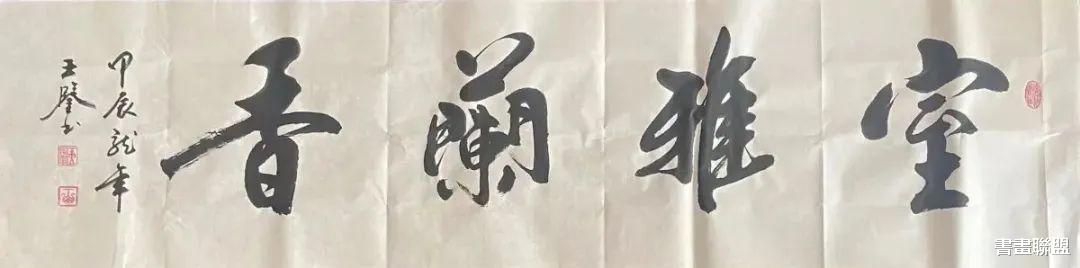 室雅蘭香
甲辰龍年
王
書畫聯盟